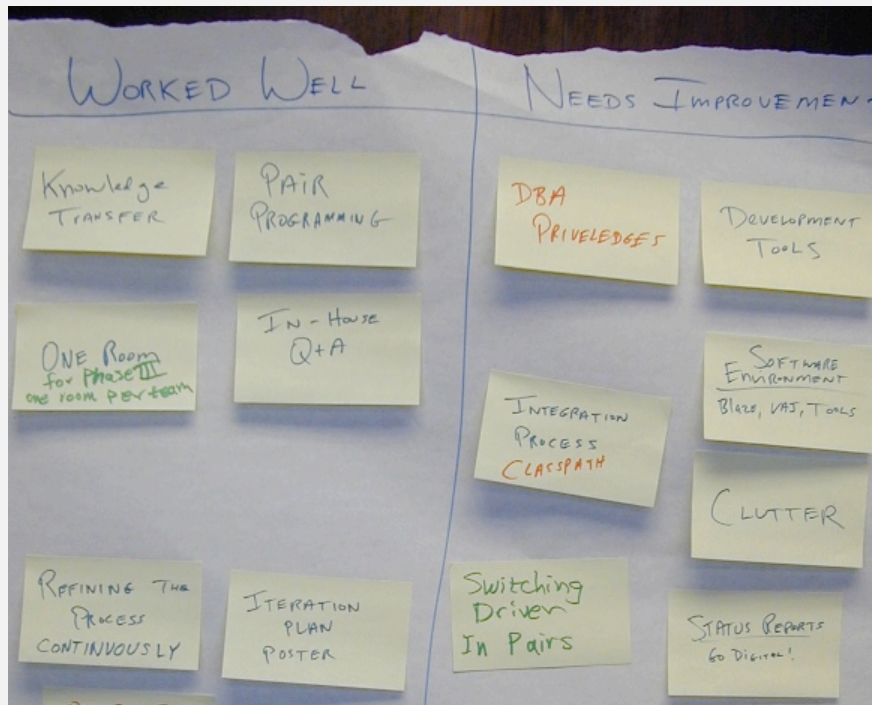 WORKED WELL
Knowledge
TRANSFER
PAIR
PROGRAMMING
ONE ROOM
for Phase III
one room per team
IN-HOUSE
Q+A
REFINING THE
PROCESS
CONTINUOUSLY
ITERATION
PLAN
POSTER
NEEDS IMPROVEMEN
DBA
PRIVELEDGES
DEVELOPMENT
TOOLS
INTEGRATION
PROCESS
CLASSPATH
SOFTWARE
ENVIRONMENT
BLAZE, VAJ, TOOLS
CLUTTER
Switching
Driver
In Pairs
STATUS REPORTS
GO DIGITAL!